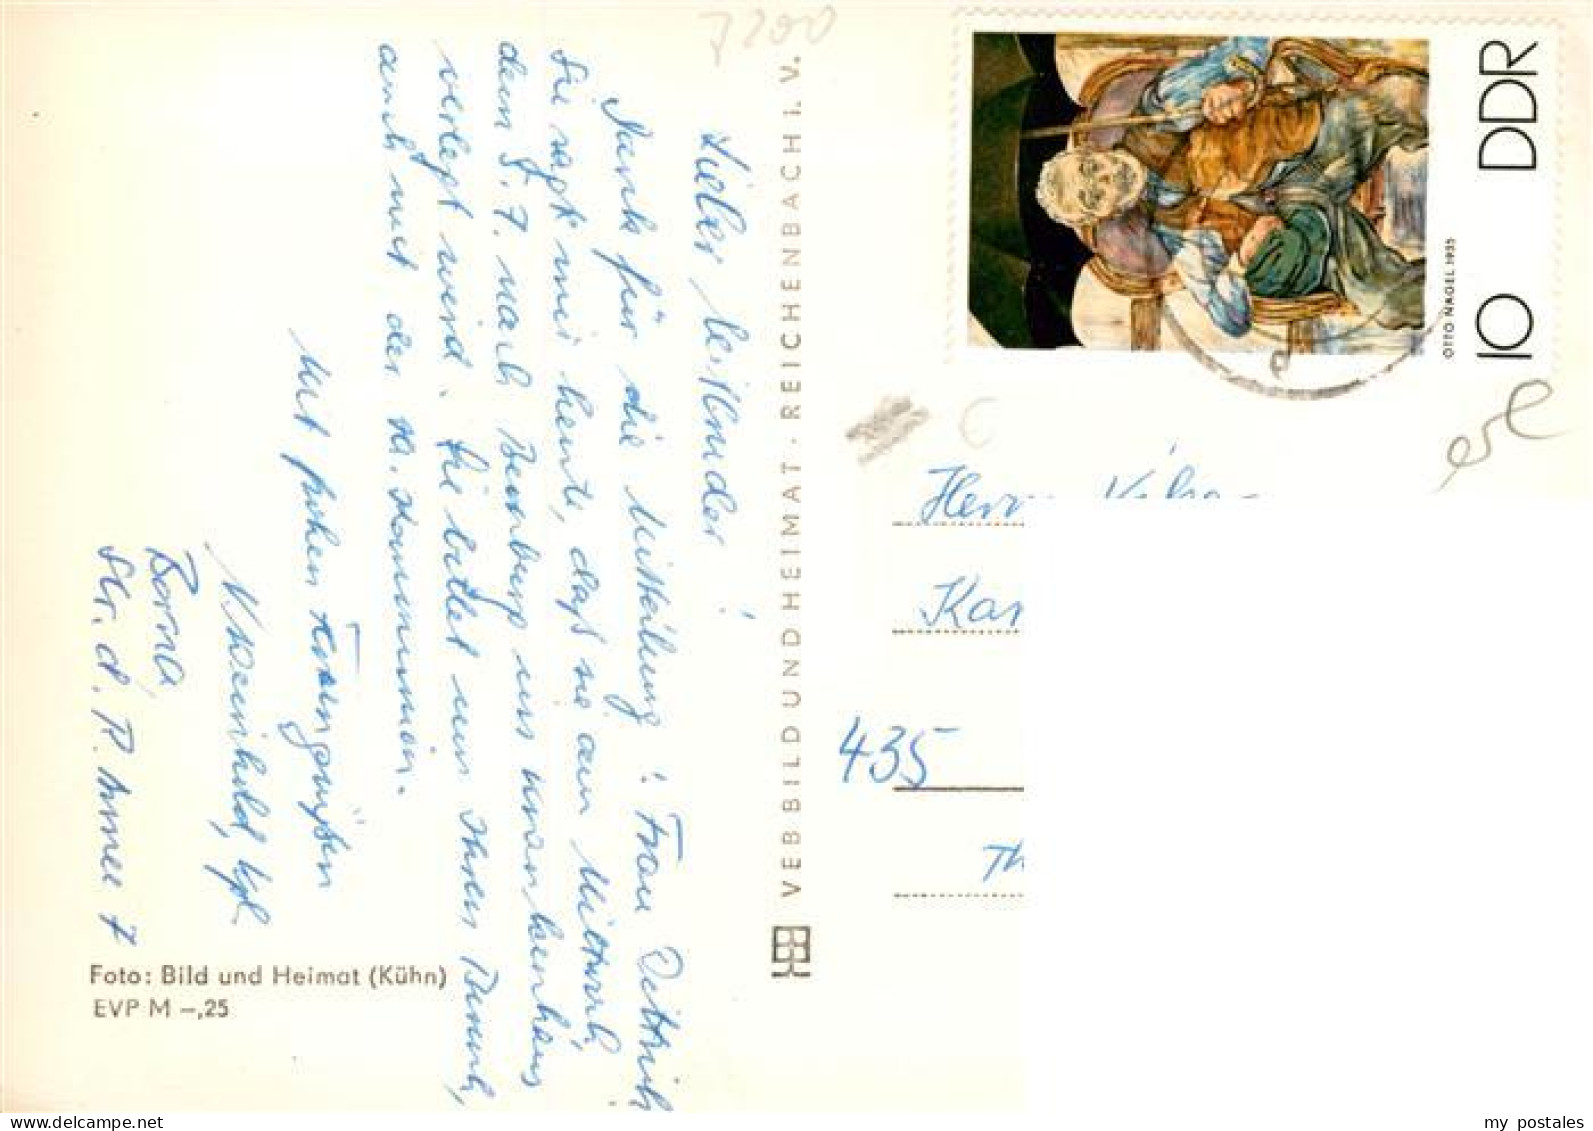 7200
Lieber
Dank für die Mitteilung! Frau Dittrich
Sie sagt mir heute, daß sie am Mittwoch,
dem 8. 7. nach Bernburg ins Krankenhaus
verlegt wird. Sie bittet um Ihren Besuch,
auch mit der Kommunion.
Mit frohen
Borna,
Str. d. R. Armee 7
Foto: Bild und Heimat (Kühn)
EVP M –,25
VEB BILD UND HEIMAT · REICHENBACH I. V.
DDR
10
OTTO NAGEL 1935
Herrn
Kar
435
Th
my postales